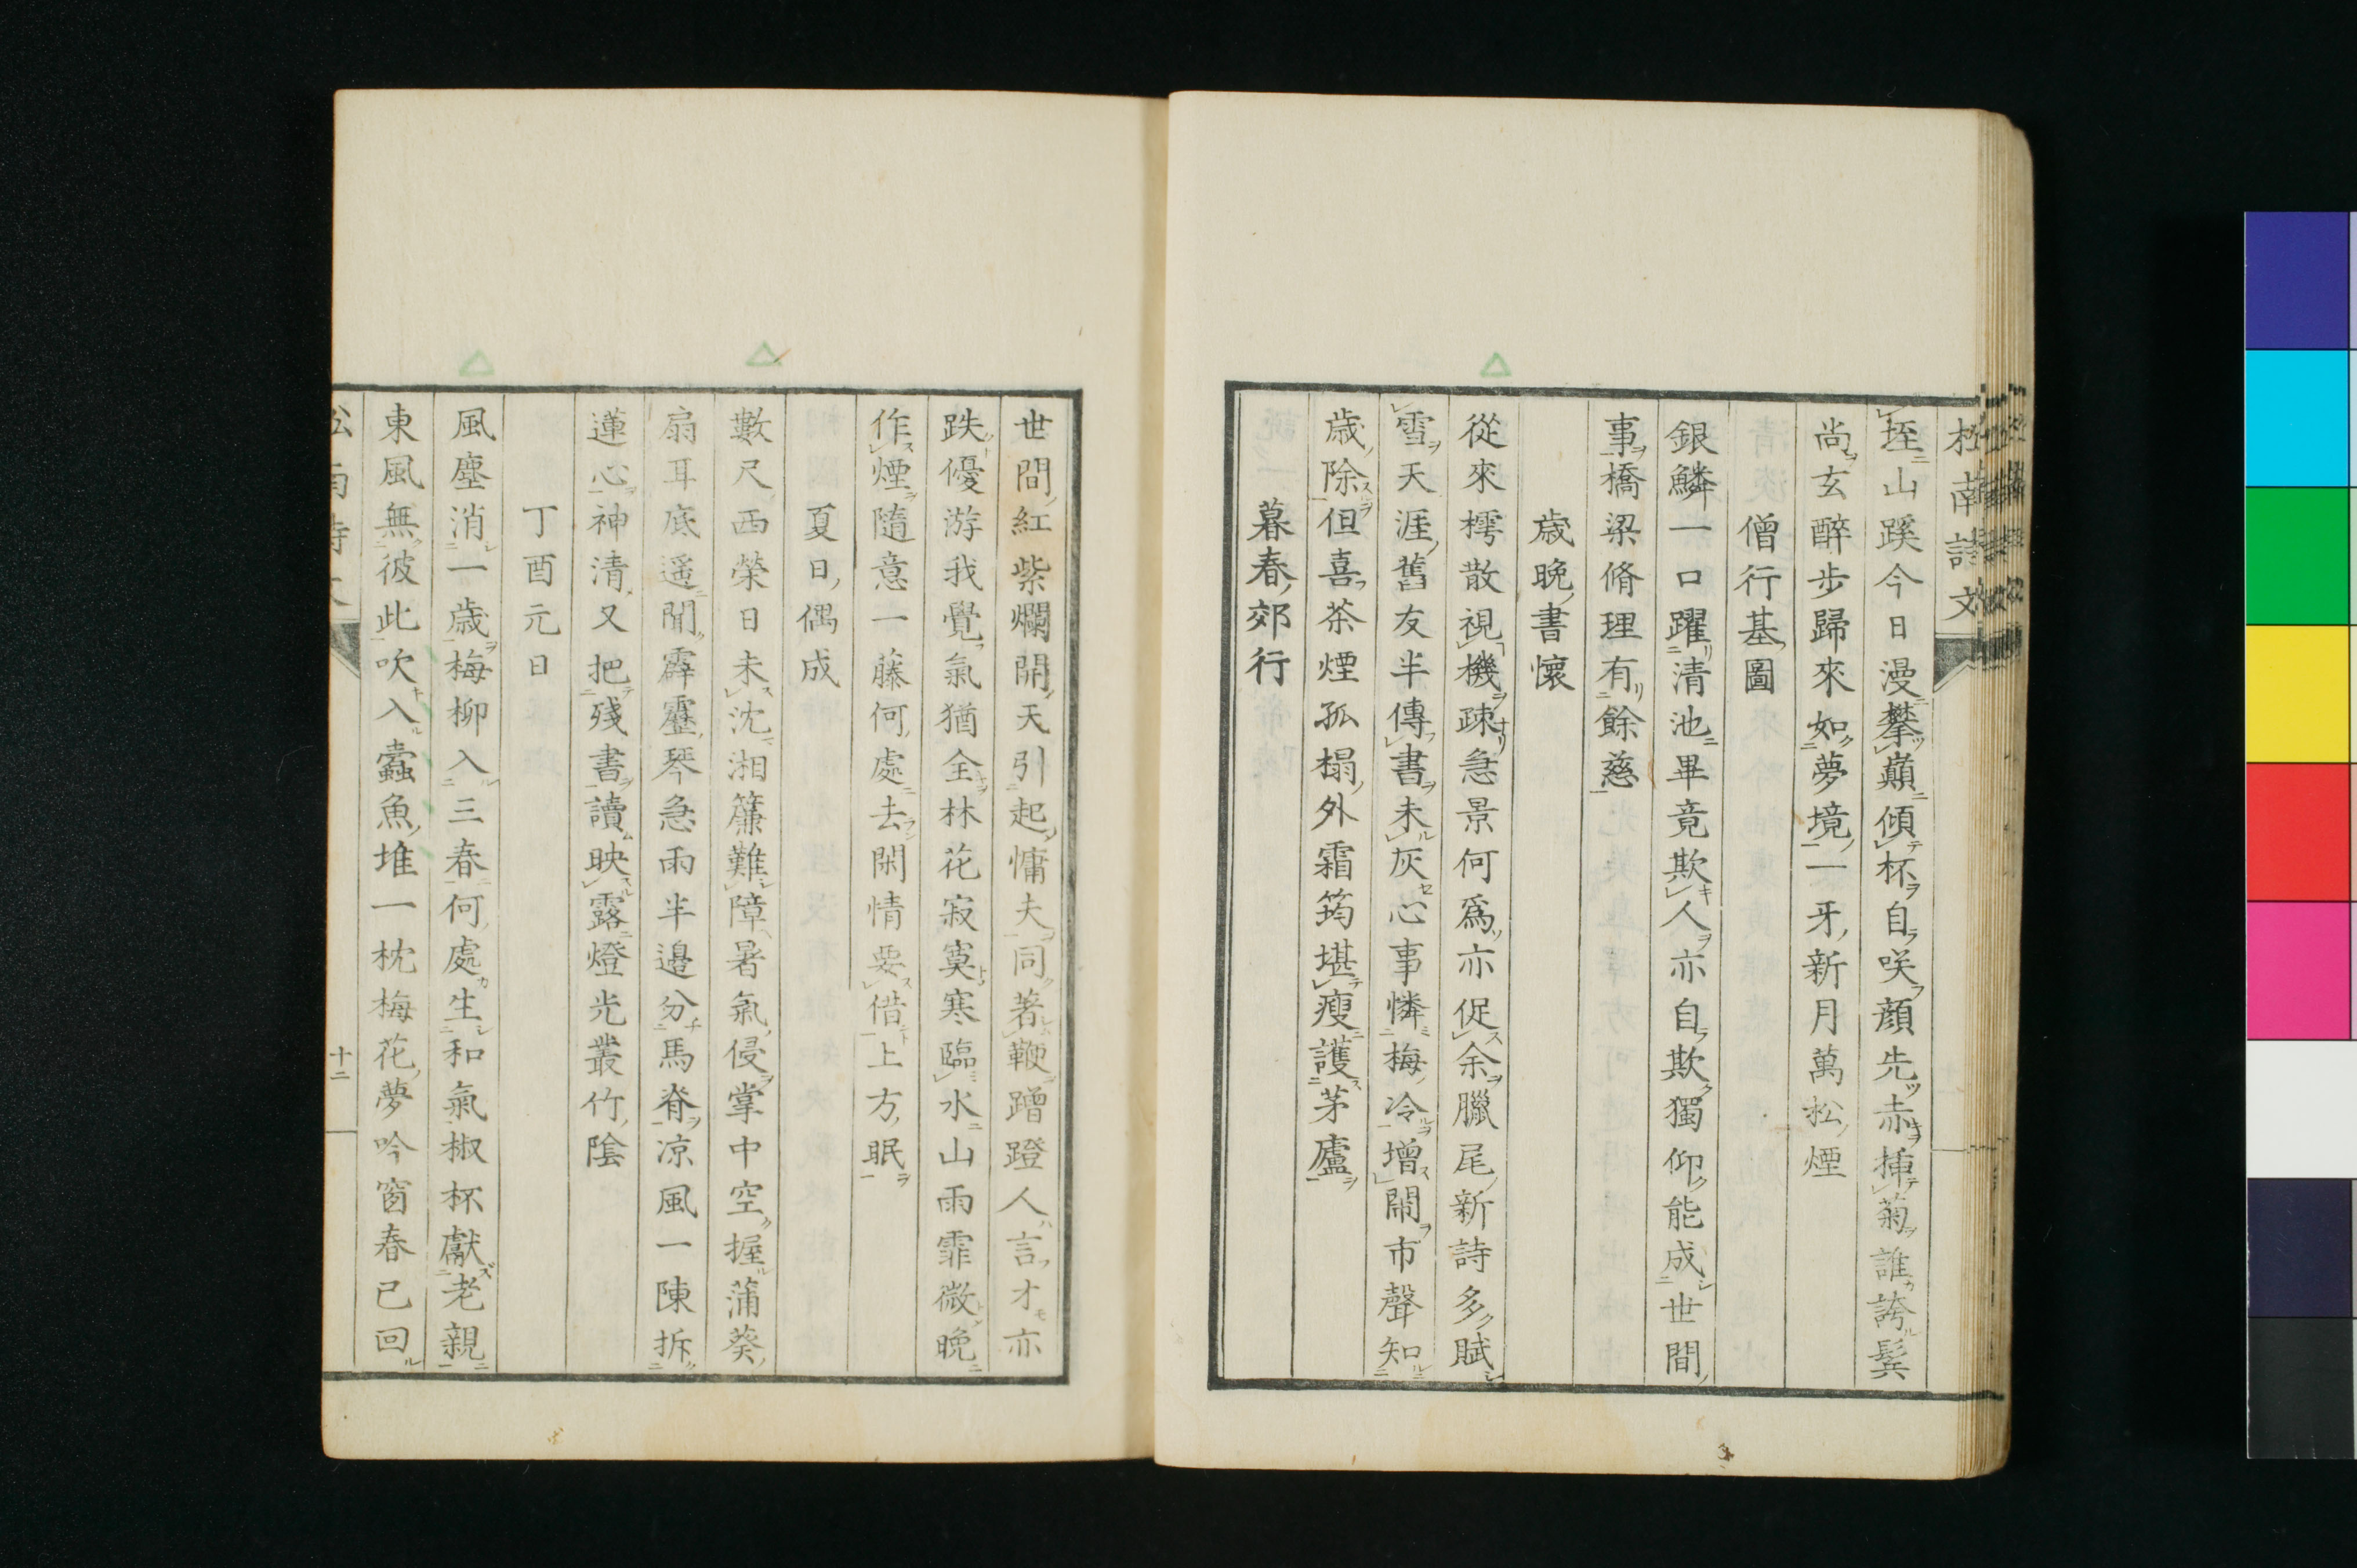 垤山蹊今日漫攀巔傾杯自咲顔先赤挿菊誰誇鬂
尚玄醉步歸來如夢境一牙新月萬松煙
僧行基圖
銀鱗一口躍清池畢竟欺人亦自欺獨仰能成世間
事橋梁脩理有餘慈
歳晩書懷
從來樗散視機疎急景何爲亦促余臘尾新詩多賦
雪天涯舊友半傳書未灰心事憐梅冷增閙市聲知
歳除但喜茶煙孤榻外霜筠堪瘦護茅廬
暮春郊行
世間紅紫爛開天引起慵夫同著鞭蹭蹬人言才亦
跌優游我覺氣猶全林花寂寞寒臨水山雨霏微晩
作煙隨意一藤何處去閑情要借上方眠
夏日偶成
數尺西榮日未沈湘簾難障暑氣侵掌中空握蒲葵
扇耳底遥聞霹靂琴急雨半邉分馬脊凉風一陳拆
蓮心神清又把殘書讀映露燈光叢竹陰
丁酉元日
風塵消一歳梅柳入三春何處生和氣椒杯獻老親
東風無彼此吹入蠹魚堆一枕梅花夢吟窗春已回
十二